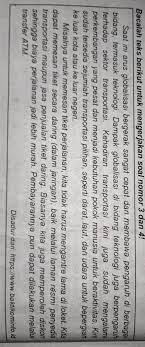 Bacalah teks berikut untuk mengerjakan soal nomor 3 dan 4!
Saat ini arus globalisasi bergerak sangat cepat dan membawa pengaruh di berbagai
bidang, termasuk teknologi. Dampak globalisasi di bidang teknologi juga berpengaruh
terhadap sektor transportasi. Kehadiran transportasi kini juga sudah mengalami
perkembangan yang pesat dan menjadi kebutuhan pokok manusia untuk beraktivitas. Kita
transportasi pilihan, seperti darat, laut dan udara untuk bepergian
ke luar kota atau ke luar negeri.
Misalnya untuk memesan tiket perjalanan, kita tidak harus mengantre lama di loket. Kita
dapat memesan tiket secara daring (dalam jaringan), baik melalui laman resmi penyedia
transportasi maupun jasa penjualan tiket daring. Berbagai jasa kita juga mempermudah
sehingga biaya perjalanan jadi lebih murah. Pembayarannya pun dapat dilakukan melalui
transfer ATM.
Disadur dari: https://www.